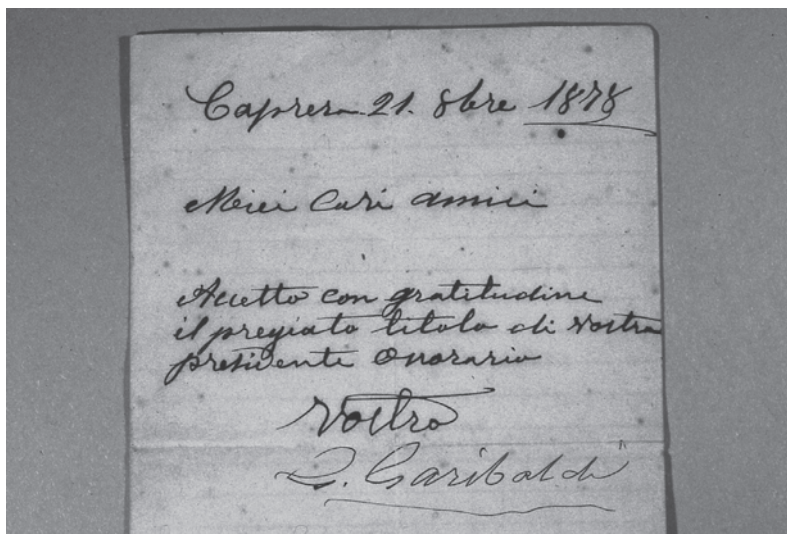 Caprera 21. 8bre 1878
Miei Cari amici
Accetto con gratitudine
il pregiato titolo di vostro
presidente Onorario
Vostro
G. Garibaldi